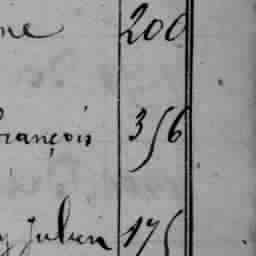 ne 200
François 356
y Julien 175